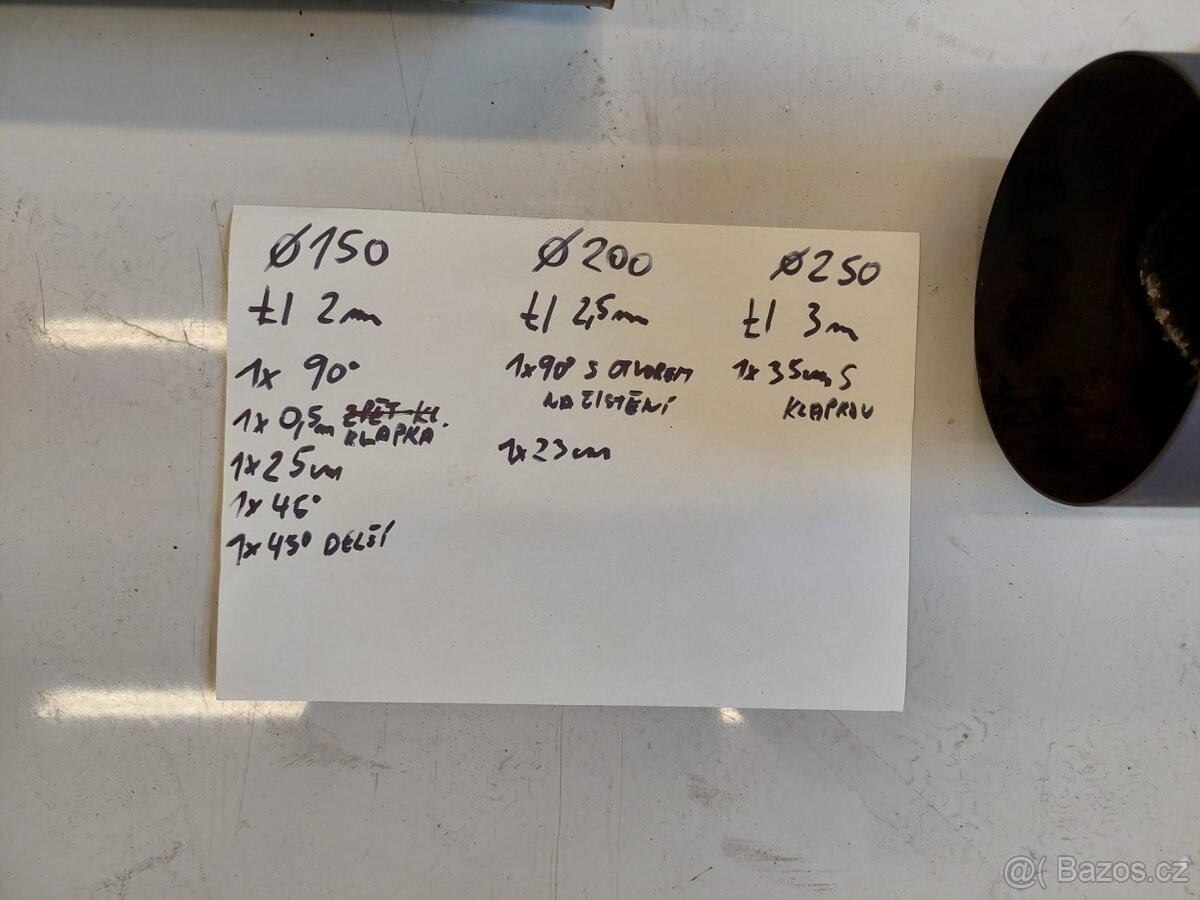 Ø150
tl 2mm
1x 90°
1x 0,5m ZPĚT KL.
KLAPKA
1x25cm
1x 45°
1x45° DELŠÍ
Ø200
tl 2,5mm
1x90° S OTVOREM
NA ČIŠTĚNÍ
1x23cm
Ø250
tl 3m
1x35cm S
KLAPKOU
@( Bazos.cz